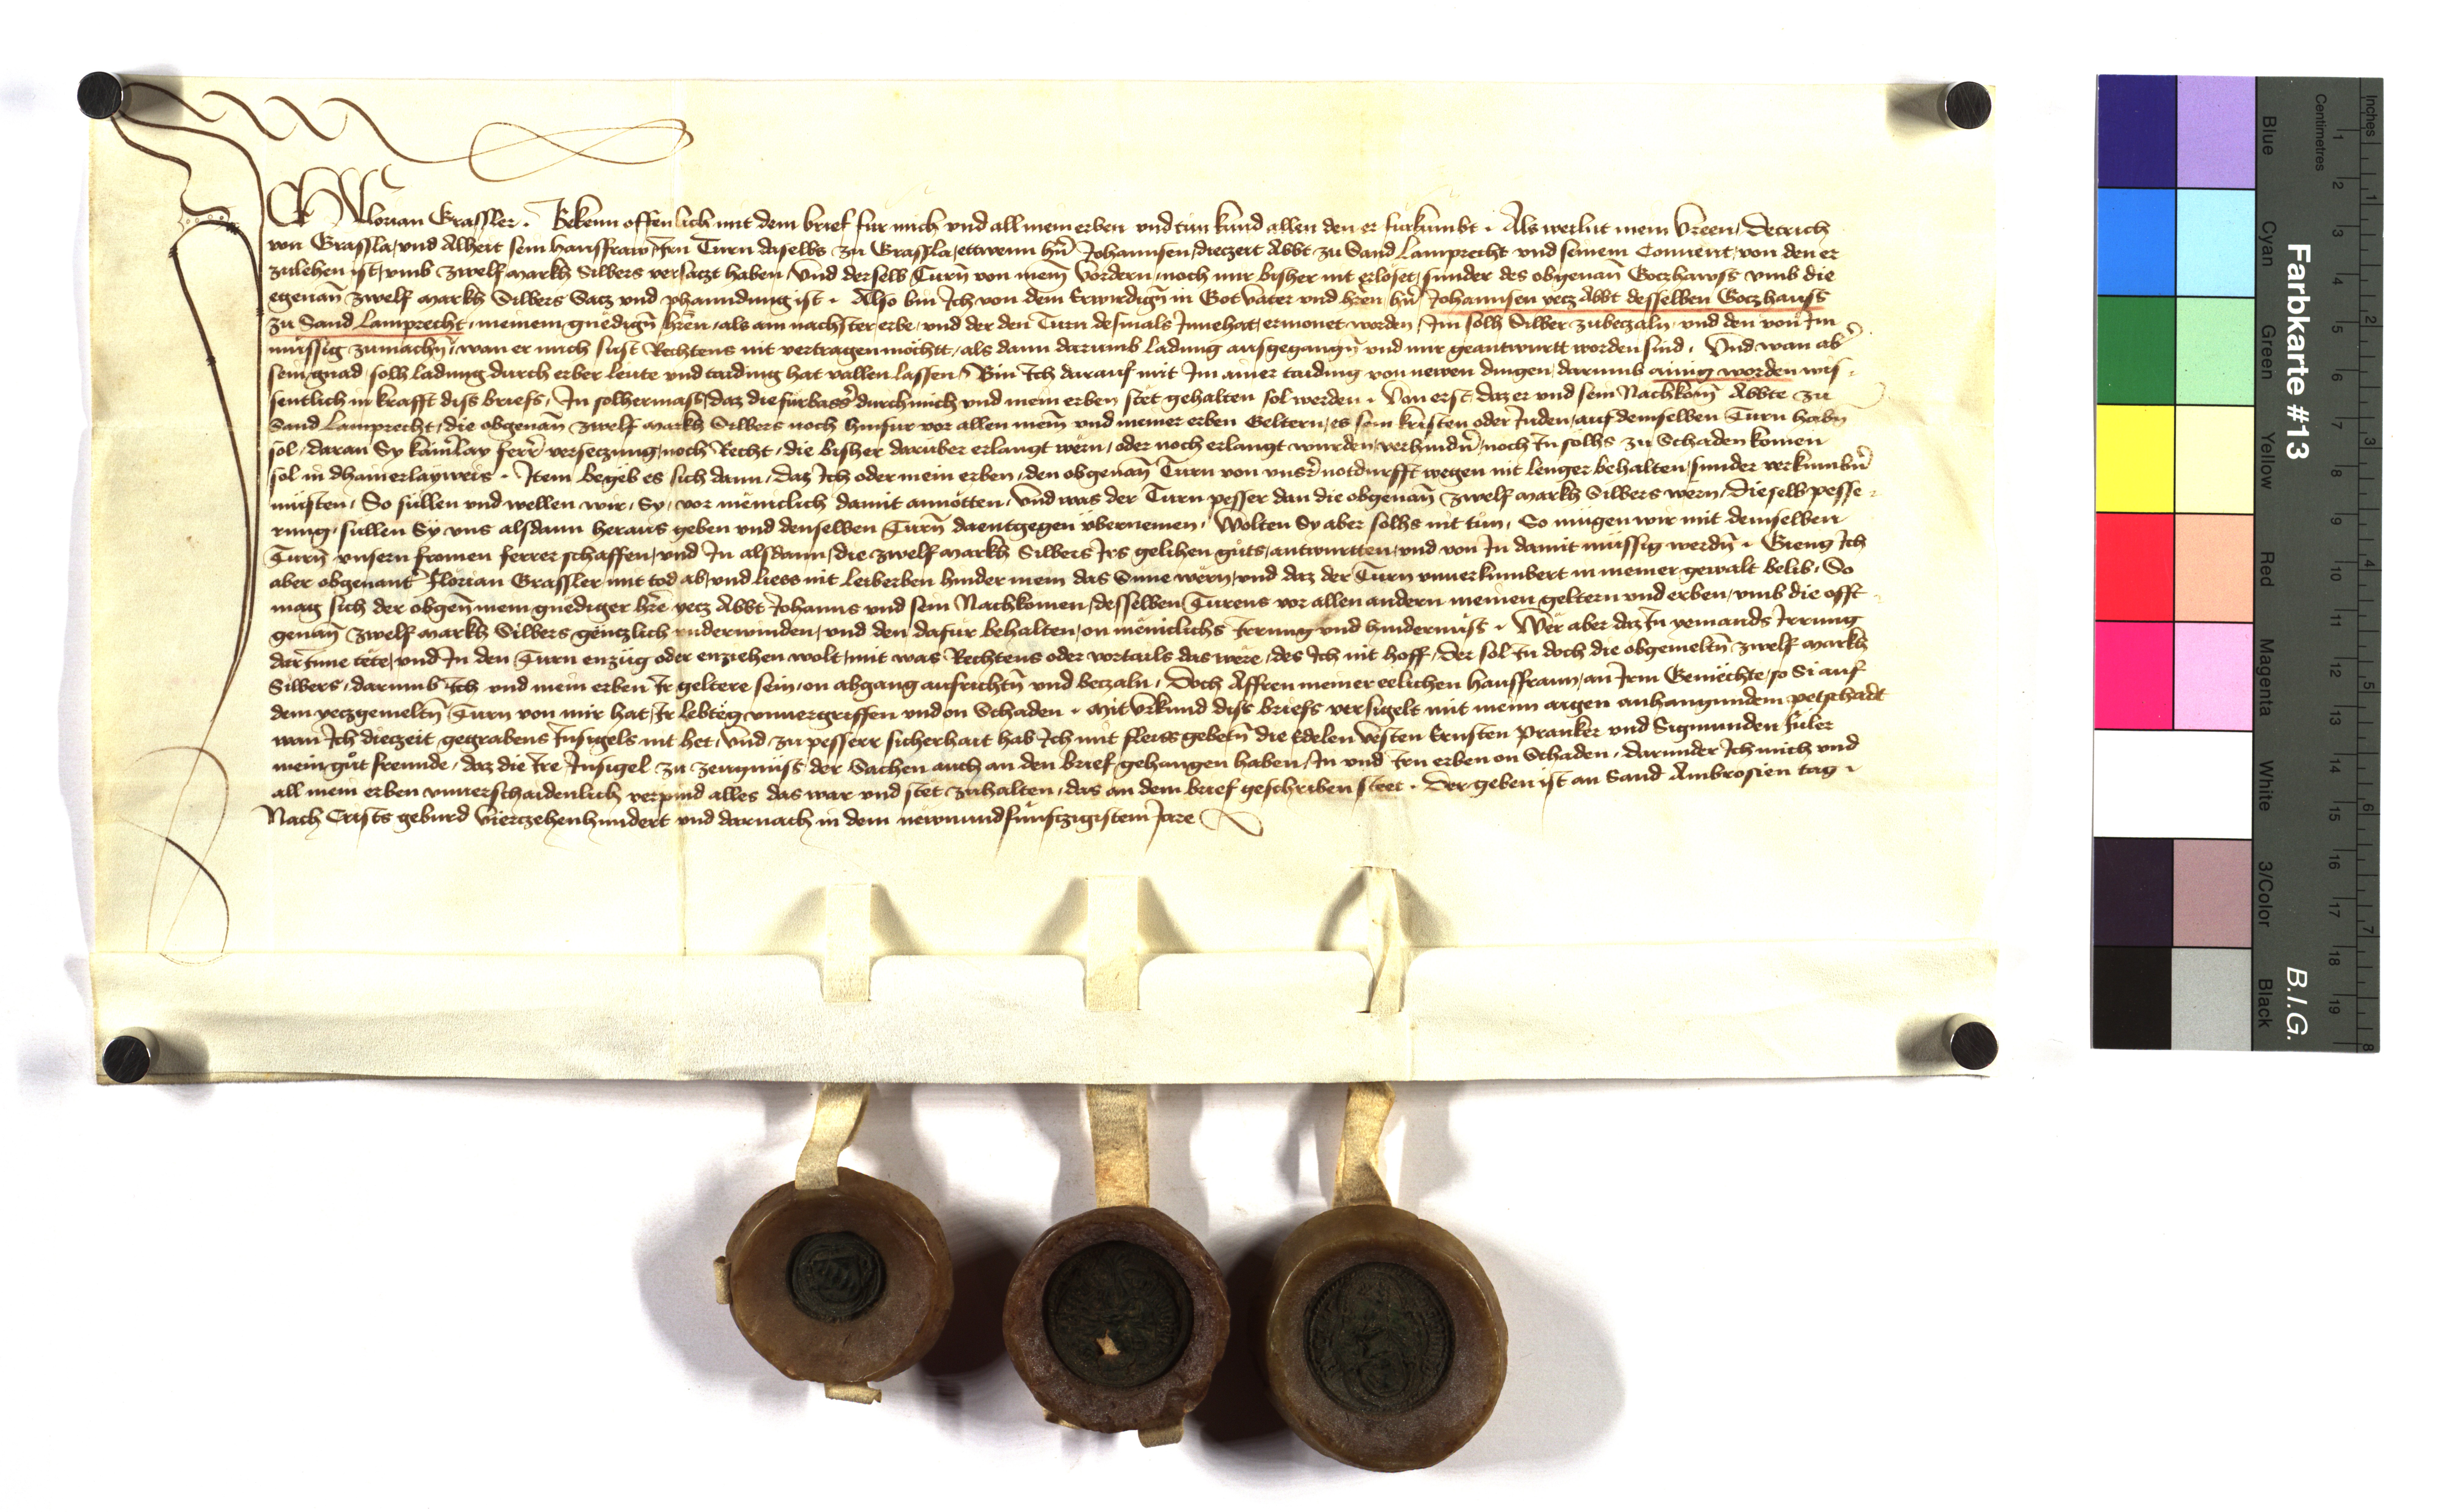 Ich Florian Grassler. Bekenn offenlich mit dem brief fur mich vnd all mein erben vnd tun kund allen den er furkumbt. Als weilnt mein Vreen, Detrich
von Grassla, vnd Alheit sein hausfraw, Irn Turn daselbs zu Grassla, ettwenn hn̄ Johannsen, diezeit Abbt zu Sand Lamprecht vnd seinem Conuent, von den er
zulehen ist, vmb zwelf markh Silbers versaczt haben, Vnd derselb Turn̄ von mein̄ Vordern, noch mir bisher nit erlöset, sunder des obgenan̄ Goczhawss vmb die
egenan̄ zwelf markh Silbers Sacz vnd phanndung ist. Also bin Ich von dem Erwirdign̄ in Got vater vnd hr̄en hn̄ Johannsen yecz Abbt desselben Goczhauss
zu Sand Lamprecht, meinem gnedign̄ hr̄en, als am nachster erbe, vnd der den Turn desmals Innehat, ermonet worden, Im solh Silber zubeczaln, vnd den von Im
müssig zumachn̄, wan er mich sust Rechtens nit vertragen möchtt, als dann darumb ladung ausgegangn̄ vnd mir geantwurtt worden sind. Vnd wan ab̄
sein gnad, solh ladung durch erber leute vnd taiding hat vallen lassen, Bin Ich darauf mit Im ainer taiding von newen dingen, darumb ainig worden wis-
sentlich in krafft diss briefs, In solhermass, daz die furbass̄ durch mich vnd mein erben stet gehalten sol werden. Von erst, daz er vnd sein Nachkom̄ Abbte zu
Sand Lamprecht, die obgenan̄ zwelf markh Silbers noch hinfur vor allen mein̄ vnd meiner erben Geltern, es sein kristen oder Juden, auf demselben Turn habn̄
sol, daran Sy kain̄lay ferr̄ verseczung, noch Recht, die bisher darüber erlangt wërn, oder noch erlangt wurden, verhindn̄, noch In solhs zu Schaden komen
sol in dhainerlayweis. Item begëb es sich dann, daz Ich oder mein erben, den obgenan̄ Turn von vnsr̄ notdurfft wegen nit lenger behalten, sunder verkumbn̄
müsten, So sullen vnd wellen wir, Sy, vor meniclich damit anuötten, Vnd was der Turn pesser dan die obgenan̄ zwelf markh Silbers wern, Dieselb pesse-
rung, sullen Sy vns alsdann heraus geben vnd denselben Turn̄ daentgegen übernemen, Wolten Sy aber solhs nit tün, So mügen wir mit demselben
Turn̄ vnsern fromen ferrer schaffen, vnd In alsdann, die zwelf markh Silbers Irs gelihen gûts, antwurtten, vnd von In damit müssig werdn̄. Gieng Ich
aber obgenant̄ Florian Grassler mit tod ab, vnd liess nit leiberben hinder mein das Süne wërn, vnd daz der Turn vnuerkumbert in meiner gewalt belib, So
mag sich der obgen̄ mein gnediger hr̄e yecz Abbt Johanns vnd sein Nachkomen, desselben Turens vor allen andern meinen geltern vnd erben, vmb die offt-
genan̄ zwelf markh Silbers genczlich vnderwinden, vnd den dafur behalten, on meniclichs Irrung vnd hindernüss. Wër aber daz In yemands Irrung
darInne tëte, vnd In den Turn enzüg oder enziehen wolt, mit was Rechtens oder vortails das were, des Ich nit hoff, Der sol In doch die obgemeltn̄ zwelf markh
Silbers, darumb Ich vnd mein erben Ir geltere sein, on abgang aufrichtn̄ vnd beczaln, Doch Affren meiner eelichen hausfraun, an Irm Gemëchte, so Si auf
dem yeczgemeltn̄ Turn von mir hat, Ir lebtëg vnuergriffen vnd on Schaden. Mit Vrkund diss briefs versigelt mit meim aigen anhangundem petschadt
wan Ich diezeit gegrabens Insigels nit het, Vnd zu pesserr sicherhait hab Ich mit fleiss gebetn̄ die Edelen Vesten Ernsten Pranker vnd Sigmunden
mein gût freunde, daz die Ire Insigel zu zeugnüss der Sachen auch an den brief gehangen haben, In vnd Irn erben on Schaden, Darunder Ich mich vnd
all mein erben vnuerschaidenlich verpind alles das war vnd stët zuhalten, das an dem brief geschriben steet. Der geben ist an Sand Ambrosien tag
Nach Crists geburd Vierczehenhundert vnd darnach in dem newnundfünfczigistem Jare
Farbkarte #13
B.I.G.
Inches
Centimetres
1 2 3 4 5 6 7 8
1 2 3 4 5 6 7 8 9 10 11 12 13 14 15 16 17 18 19
Blue
Cyan
Green
Yellow
Red
Magenta
White
3/Color
Black